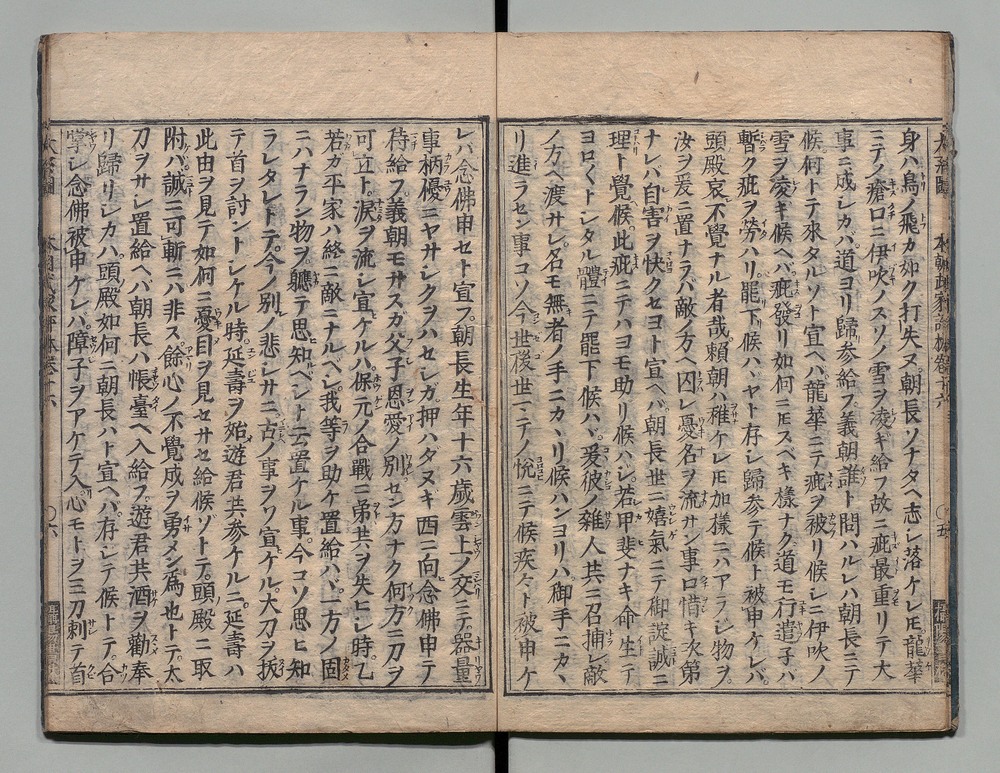 身ハ鳥ノ飛カ如ク打失ヌ朝長ソナタヘ志レ落ケレ𪜈龍華
ニテノ瘡口ニ伊吹ノスソノ雪ヲ凌ギ給フ故ニ疵最重リテ大
事ニ成シカバ道ヨリ歸参給フ義朝誰ト問ハルレハ朝長ニテ
候何トテ來タルソト宣ヘハ龍華ニテ疵ヲ被リ候シニ伊吹ノ
雪ヲ凌キ候ヘバ疵發リ如何ニ𪜈スベキ樣ナク道モ行遣子ハ
暫ク疵ヲ労ハリ罷下候ハヾヤト存シ歸参テ候ト被申ケレバ
頭殿哀不覺ナル者哉頼朝ハ稚ケレ𪜈加樣ニハアラシ物ヲ
汝ヲ爰ニ置ナラバ敵ノ方ヘ囚レ憂名ヲ流サン事口惜キ次第
ナレバ自害ヲ快クセヨト宣ヘバ朝長世ニ嬉氣ニテ御諚誠ニ
理ト覺候此疵ニテハヨモ助リ候ハシ若甲斐ナキ命生テ
ヨロ〱トシタル體ニテ罷下候ハヾ爰彼ノ雜人共ニ召捕レ敵
ノ方ヘ渡サレ名モ無者ノ手ニカヽリ候ハンヨリハ御手ニカヽ
リ進ラセン事コソ今世後世ニテノ悦ニテ候疾々ト被申ケ
レバ念佛申セト宣フ朝長生年十六歳雲上ノ交ニテ器量
事柄優ニヤサシクヲハセシガ押ハダヌキ西ニ向念佛申テ
待給フ義朝モサスガ父子恩愛ノ別セン方ナク何方ニ刀ヲ
可立ト涙ヲ流シ宣ケルハ保元ノ合戰ニ弟共ヲ失ヒシ時乙
若ガ平家ハ終ニ敵ニナルベシ我等ヲ助ケ置給ハヾ一方ノ固
ニハナラン物ヲ軈テ思知ベシト云置ケル事今コソ思ヒ知
ラレタレトテ今ノ別ノ悲シサニ古ノ事ヲソ宣ケル大刀ヲ抜
テ首ヲ討ントシケル時延壽ヲ始遊君共参ケルニ延壽ハ
此由ヲ見テ如何ニ憂目ヲ見セサセ給候ソトテ頭殿ニ取
附ハ誠ニ可斬ニハ非ス餘心ノ不覺成ヲ勇メン爲也トテ太
刀ヲサシ置給ヘバ朝長ハ帳臺ヘ入給フ遊君共酒ヲ勸奉
リ歸リシカハ頭殿如何ニ朝長ハト宣ヘハ存シテ候トテ合
掌シ念佛被申ケレバ障子ヲアケテ入心モトヲ三刀刺テ首